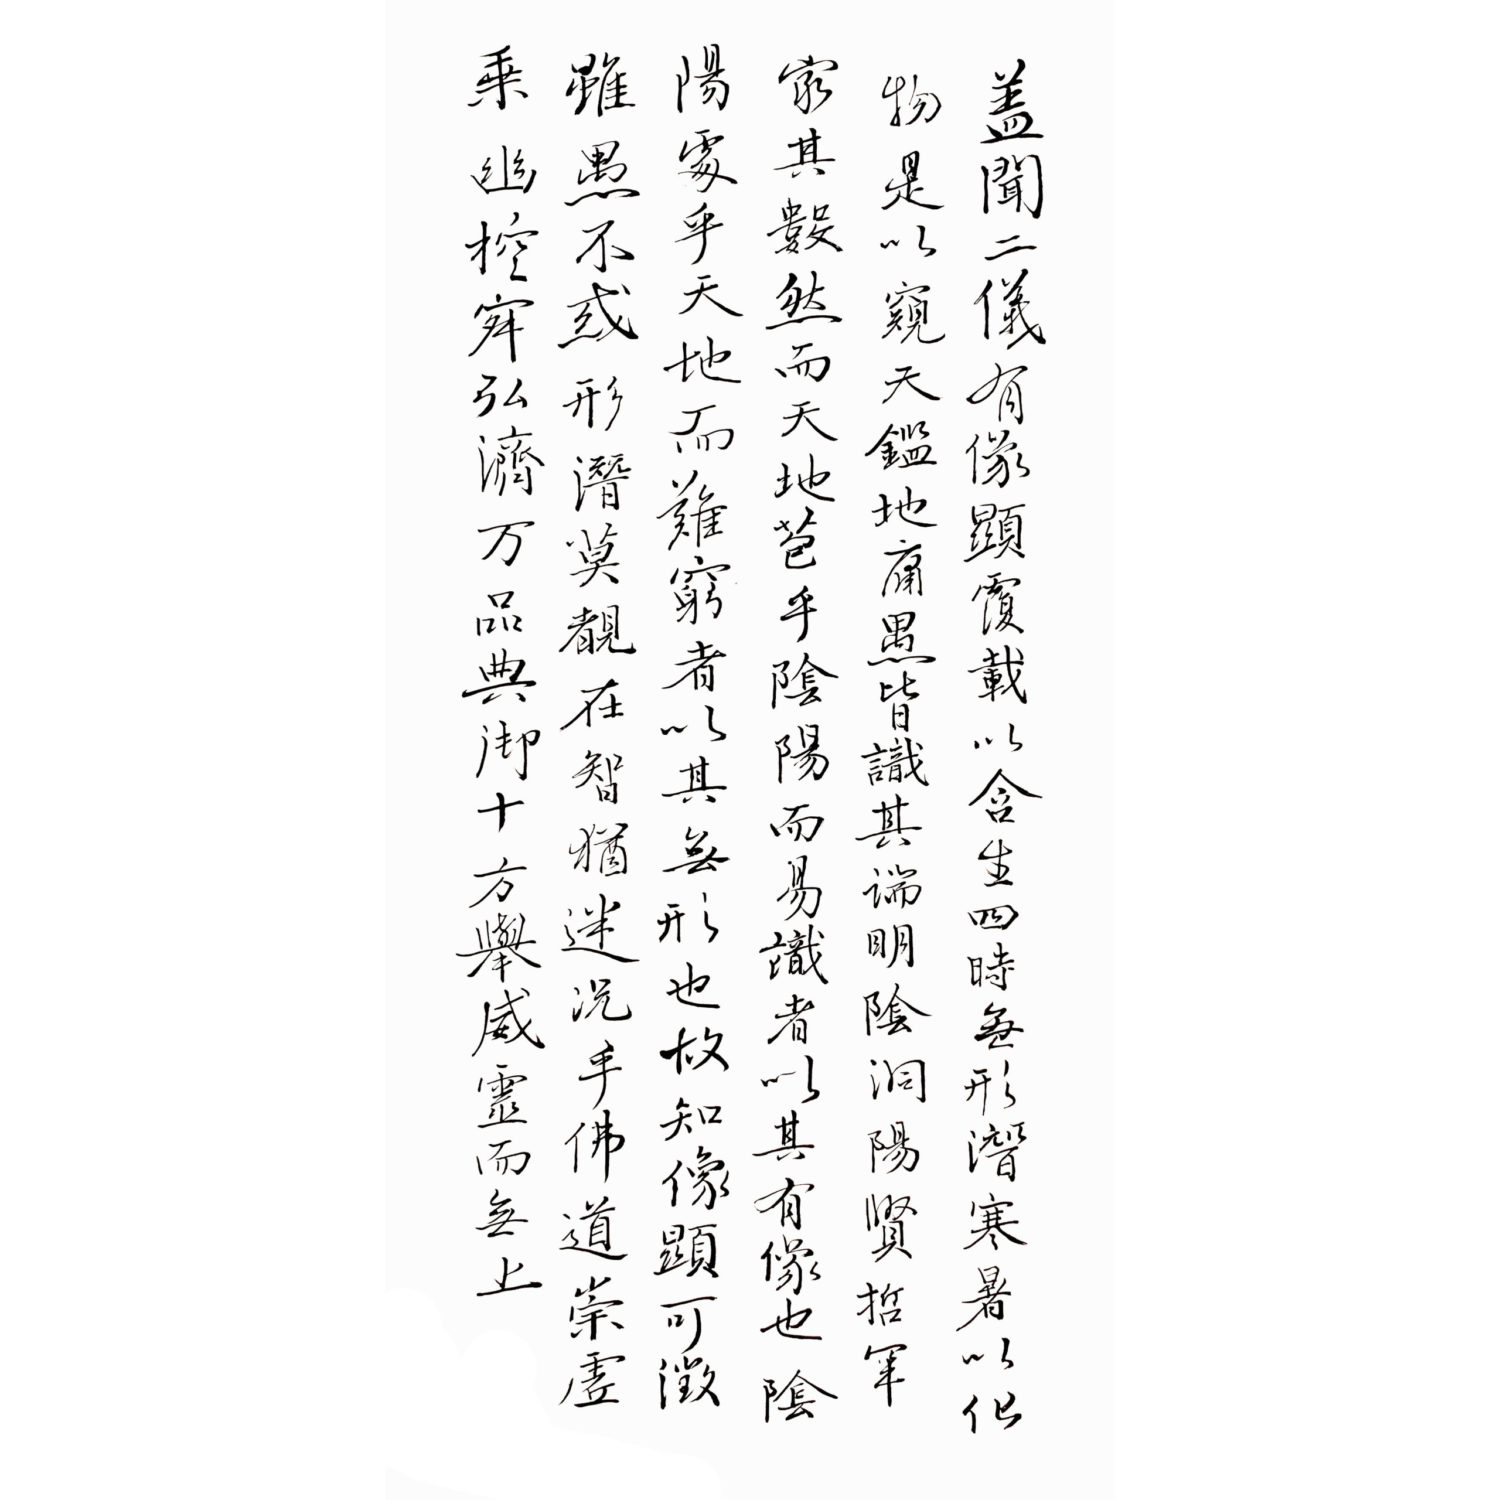 盖聞二儀有像顯覆載以含生四時無形潛寒暑以化
物是以窺天鑑地庸愚皆識其端明陰洞陽賢哲罕
窮其數然而天地苞乎陰陽而易識者以其有像也陰
陽處乎天地而難窮者以其無形也故知像顯可徵
雖愚不惑形潛莫覩在智猶迷況乎佛道崇虛
乘幽控寂弘濟万品典御十方舉威靈而無上